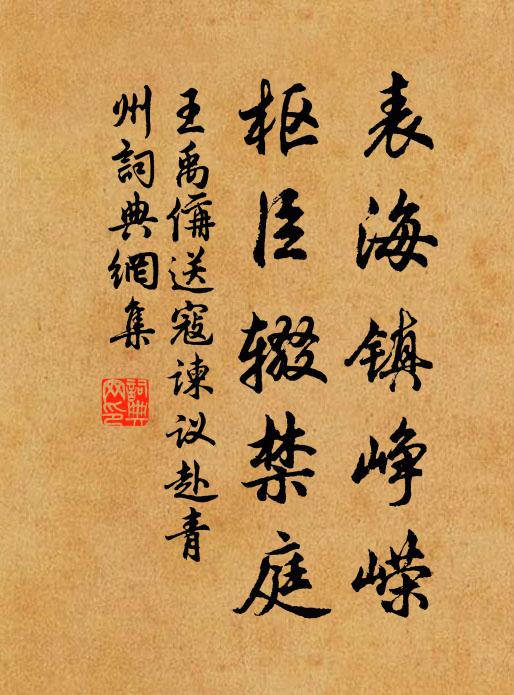 表海镇峥嵘
枢臣辍禁庭
王禹偁送寇谏议赴青
州詞典網集
詞典網印